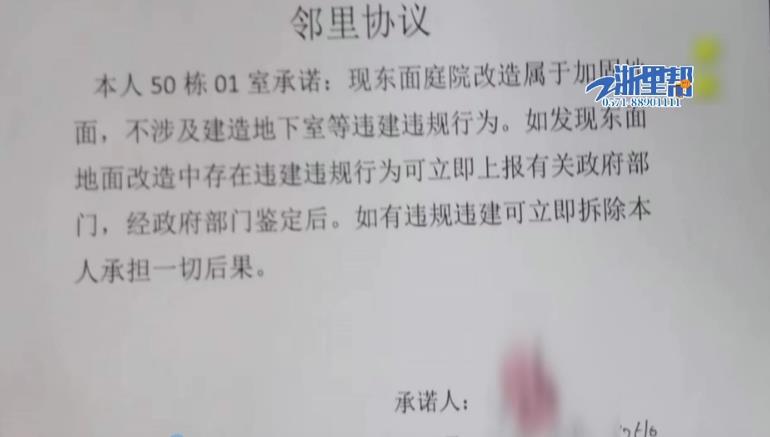 邻里协议
本人 50 栋 01 室承诺：现东面庭院改造属于加固地
浙里帮
0571-88901111
面，不涉及建造地下室等违建违规行为。如发现东面
地面改造中存在违建违规行为可立即上报有关政府部
门，经政府部门鉴定后。如有违规违建可立即拆除本
人承担一切后果。
承诺人：